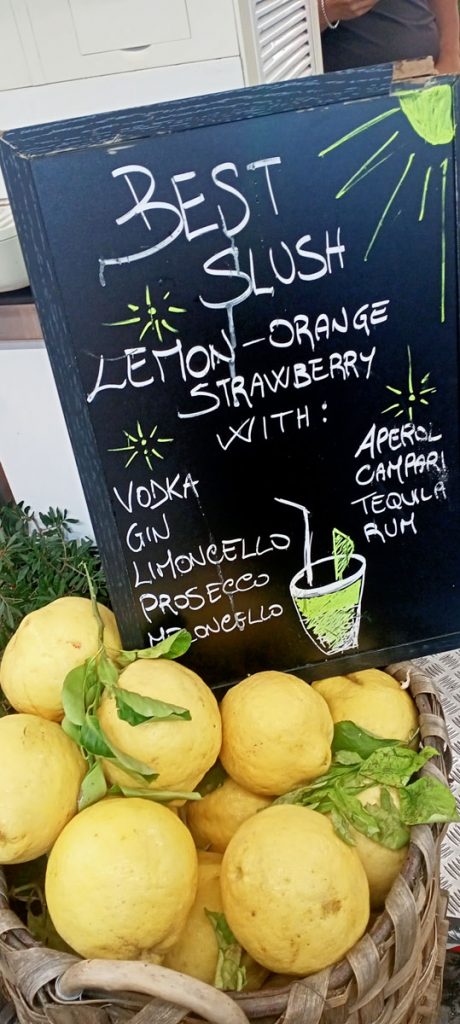 BEST
SLUSH
LEMON-ORANGE
STRAWBERRY
WITH:
VODKA
GIN
LIMONCELLO
PROSECCO
MELONCELLO
APEROL
CAMPARI
TEQUILA
RUM